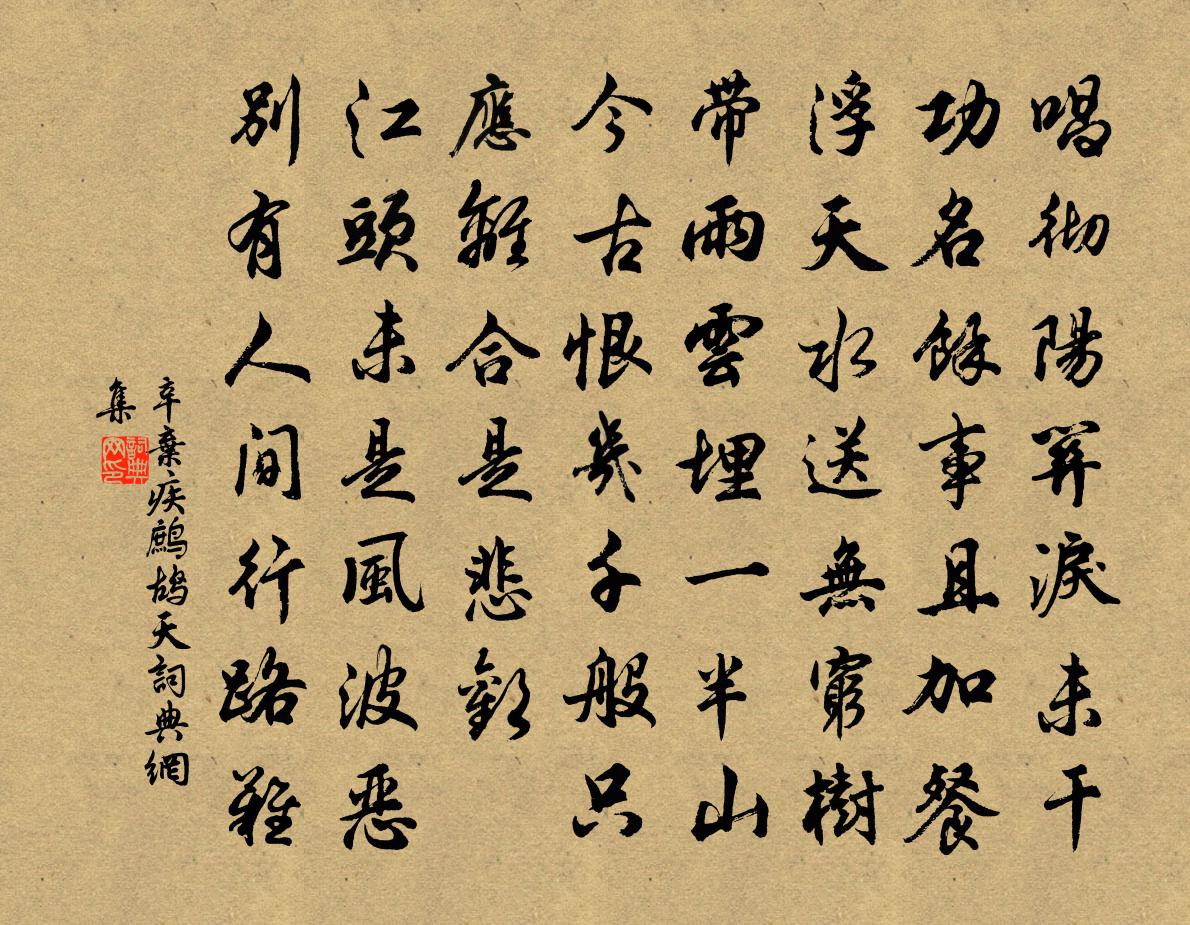 唱彻陽關淚未干
功名餘事且加餐
浮天水送無窮樹
带雨雲埋一半山
今古恨幾千般只
應離合是悲歡
江頭未是風波恶
别有人間行路難
辛棄疾鷓鴣天詞典網
集
詞典
网印